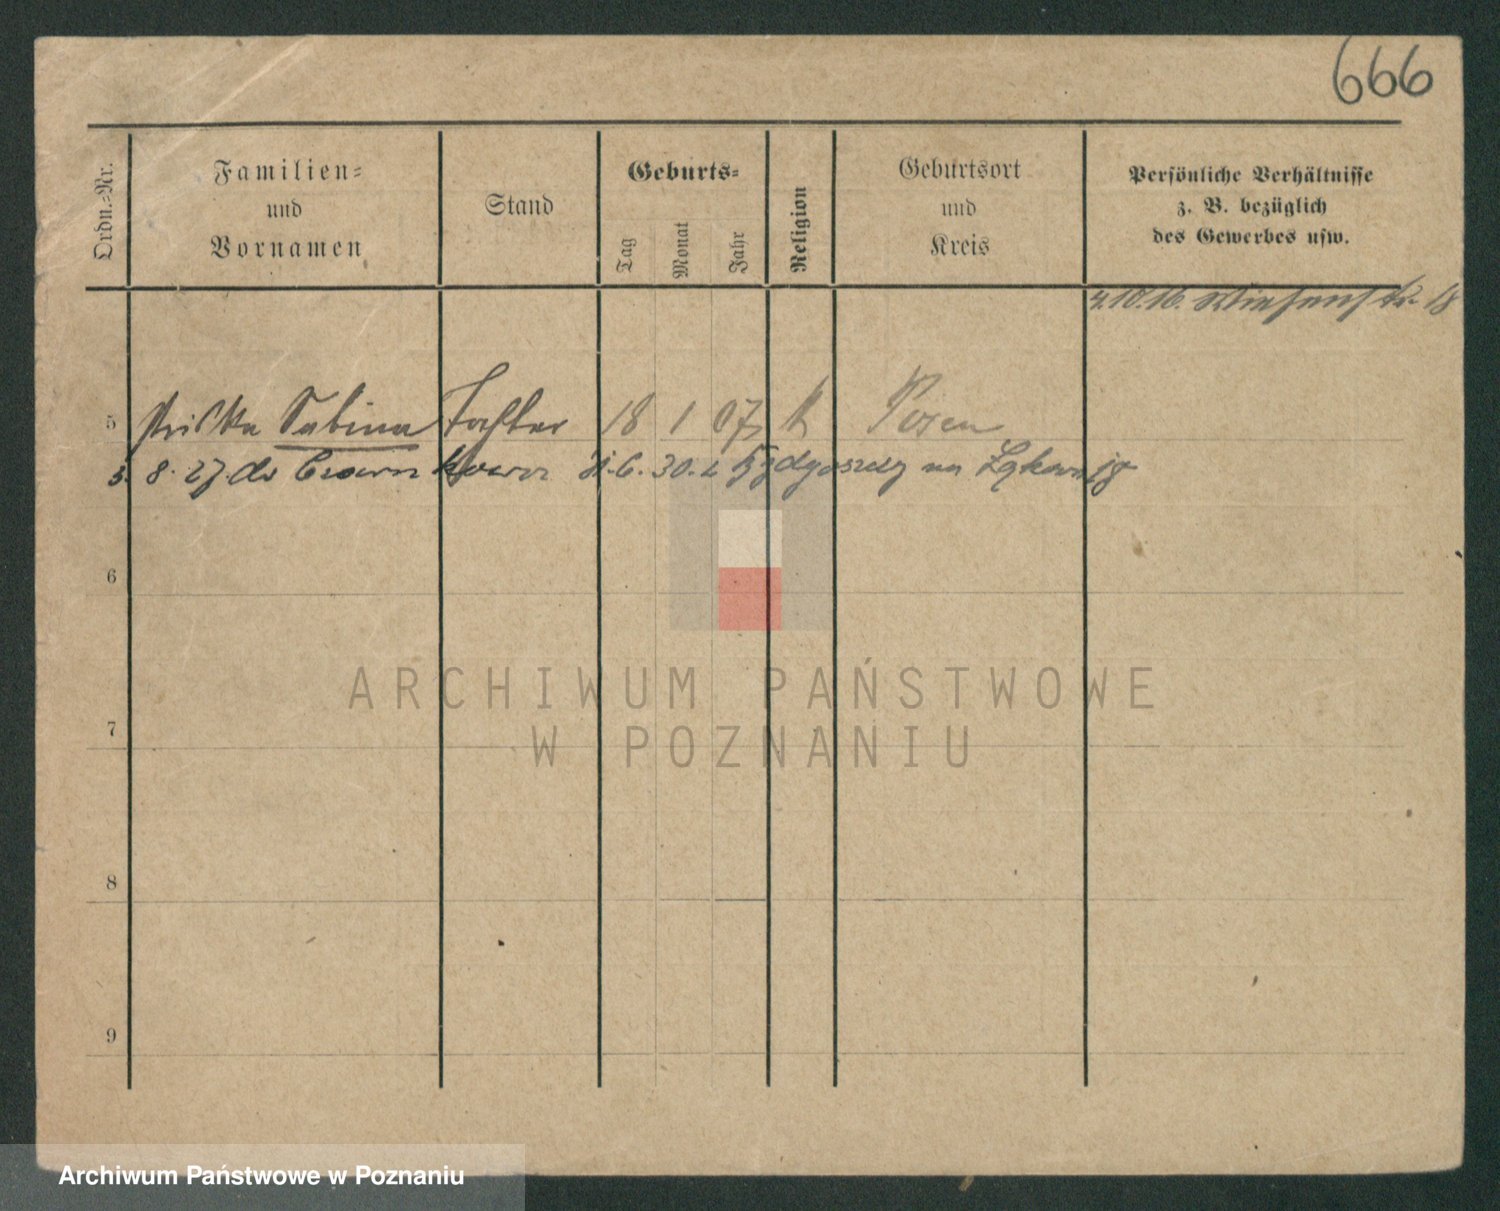 666
Ordn.=Nr.
Familien=
und
Vornamen
Stand
Geburts=
Tag
Monat
Jahr
Religion
Geburtsort
und
Kreis
Persönliche Verhältnisse
z. B. bezüglich
des Gewerbes usw.
4.10.16. 18
5 Sabina Tochter 18 1 07 k Posen
3. 8. 27. do 6. 30. z Bydgoszczy na
6
ARCHIWUM PAŃSTWOWE
7
W POZNANIU
8
9
Archiwum Państwowe w Poznaniu